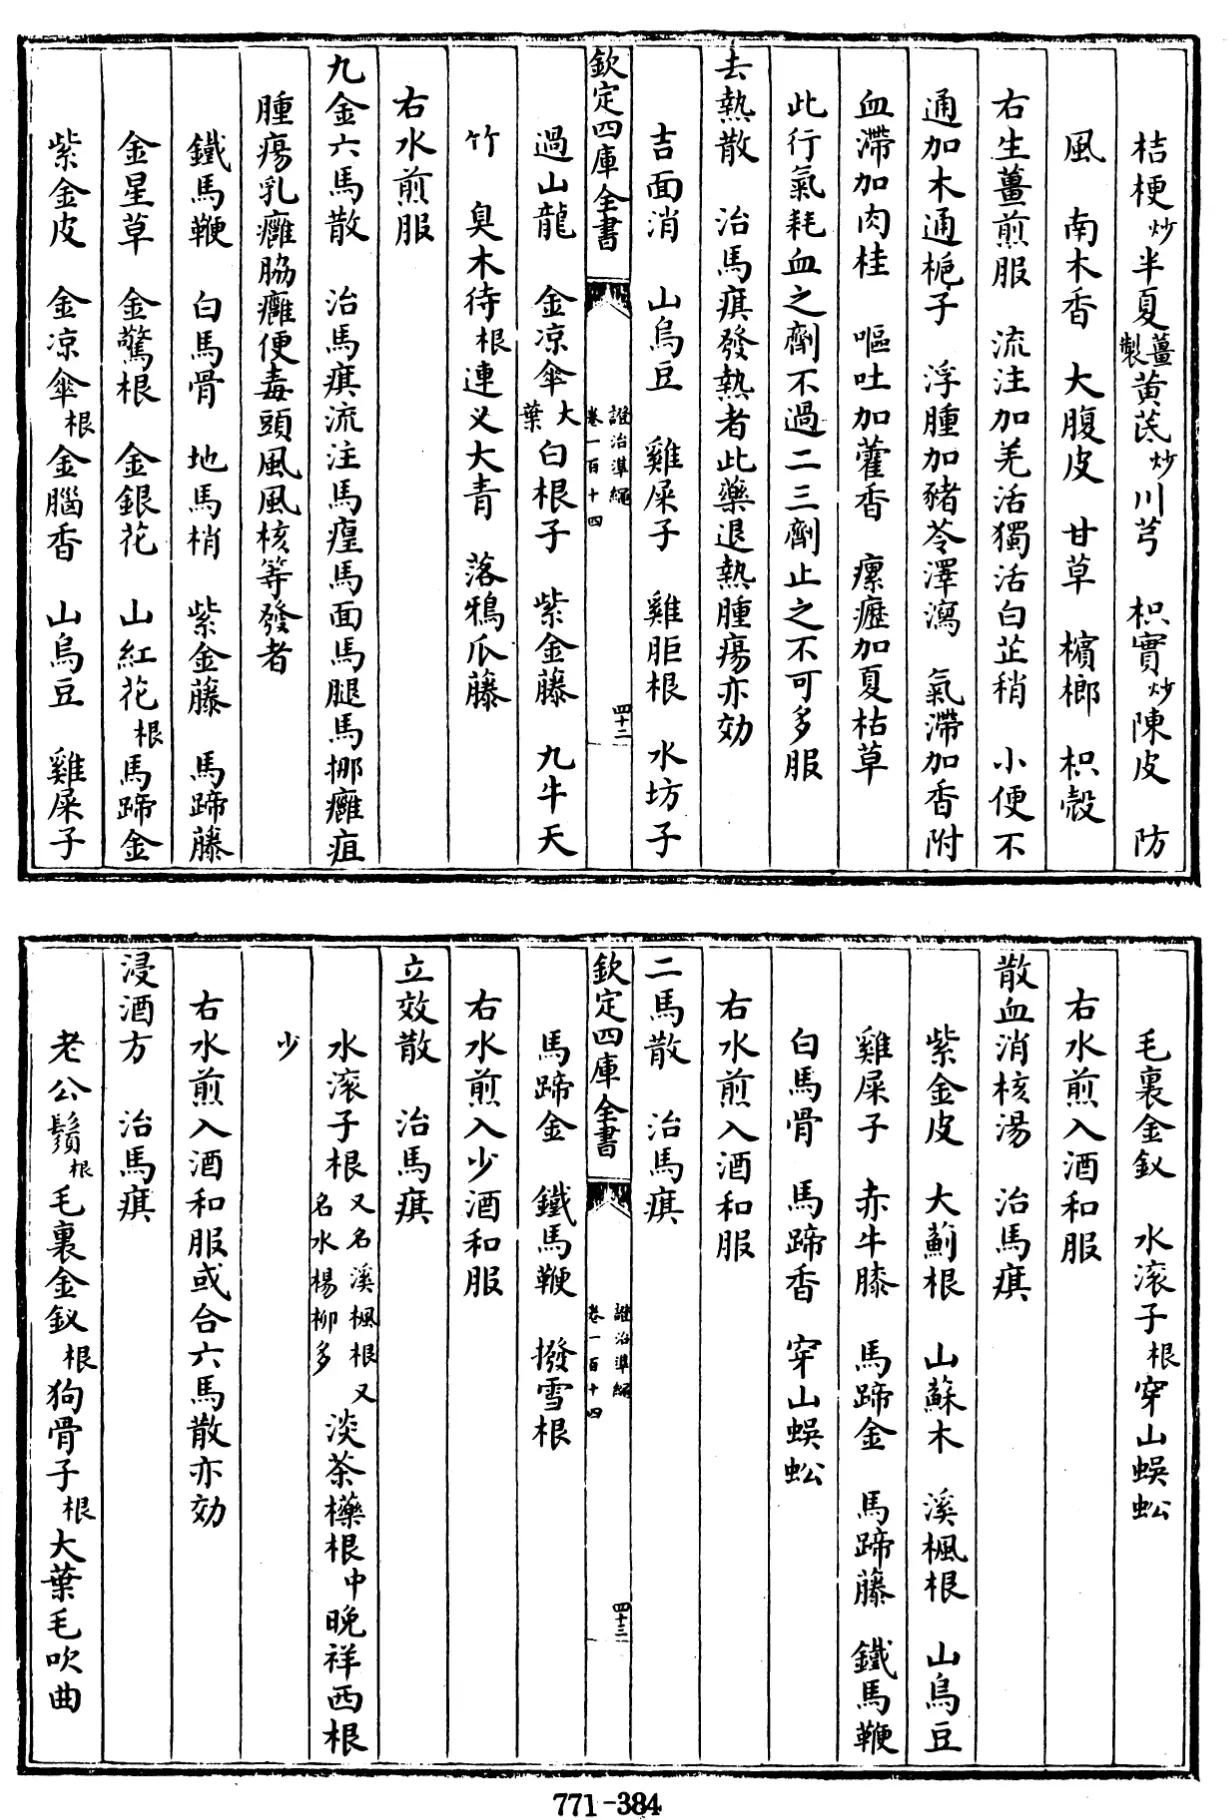 桔梗炒半夏薑製黄芪炒川芎　枳實炒陳皮　防
風　南木香　大腹皮　甘草　檳榔　枳殼
右生薑煎服　流注加羌活獨活白芷稍　小便不
通加木通梔子　浮腫加豬苓澤瀉　氣滯加香附
血滯加肉桂　嘔吐加藿香　瘰癧加夏枯草
此行氣耗血之劑不過二三劑止之不可多服
去熱散　治馬㾾發熱者此藥退熱腫瘍亦効
吉面消　山烏豆　雞屎子　雞胵根　水坊子
欽定四庫全書　證治準繩卷一百十四　四十二
過山龍　金凉傘大葉白根子　紫金藤　九牛天
竹　臭木待根連义大青　落鴉爪藤
右水煎服
九金六馬散　治馬㾾流注馬㾮馬面馬腿馬挪癰疽
腫瘍乳癰脇癰便毒頭風風核等發者
鐵馬鞭　白馬骨　地馬梢　紫金藤　馬蹄藤
金星草　金驚根　金銀花　山紅花根馬蹄金
紫金皮　金凉傘根金腦香　山烏豆　雞屎子
毛裏金釵　水滚子根穿山蜈蚣
右水煎入酒和服
散血消核湯　治馬㾾
紫金皮　大薊根　山蘇木　溪楓根　山烏豆
雞屎子　赤牛膝　馬蹄金　馬蹄藤　鐵馬鞭
白馬骨　馬蹄香　穿山蜈蚣
右水煎入酒和服
二馬散　治馬㾾
欽定四庫全書　證治準繩卷一百十四　四十三
馬蹄金　鐵馬鞭　撥雪根
右水煎入少酒和服
立效散　治馬㾾
水滚子根又名溪楓根又名水楊柳多淡茶櫱根中晚祥西根
少
右水煎入酒和服或合六馬散亦効
浸酒方　治馬㾾
老公鬚根毛裏金釵根狗骨子根大葉毛吹曲
771-384